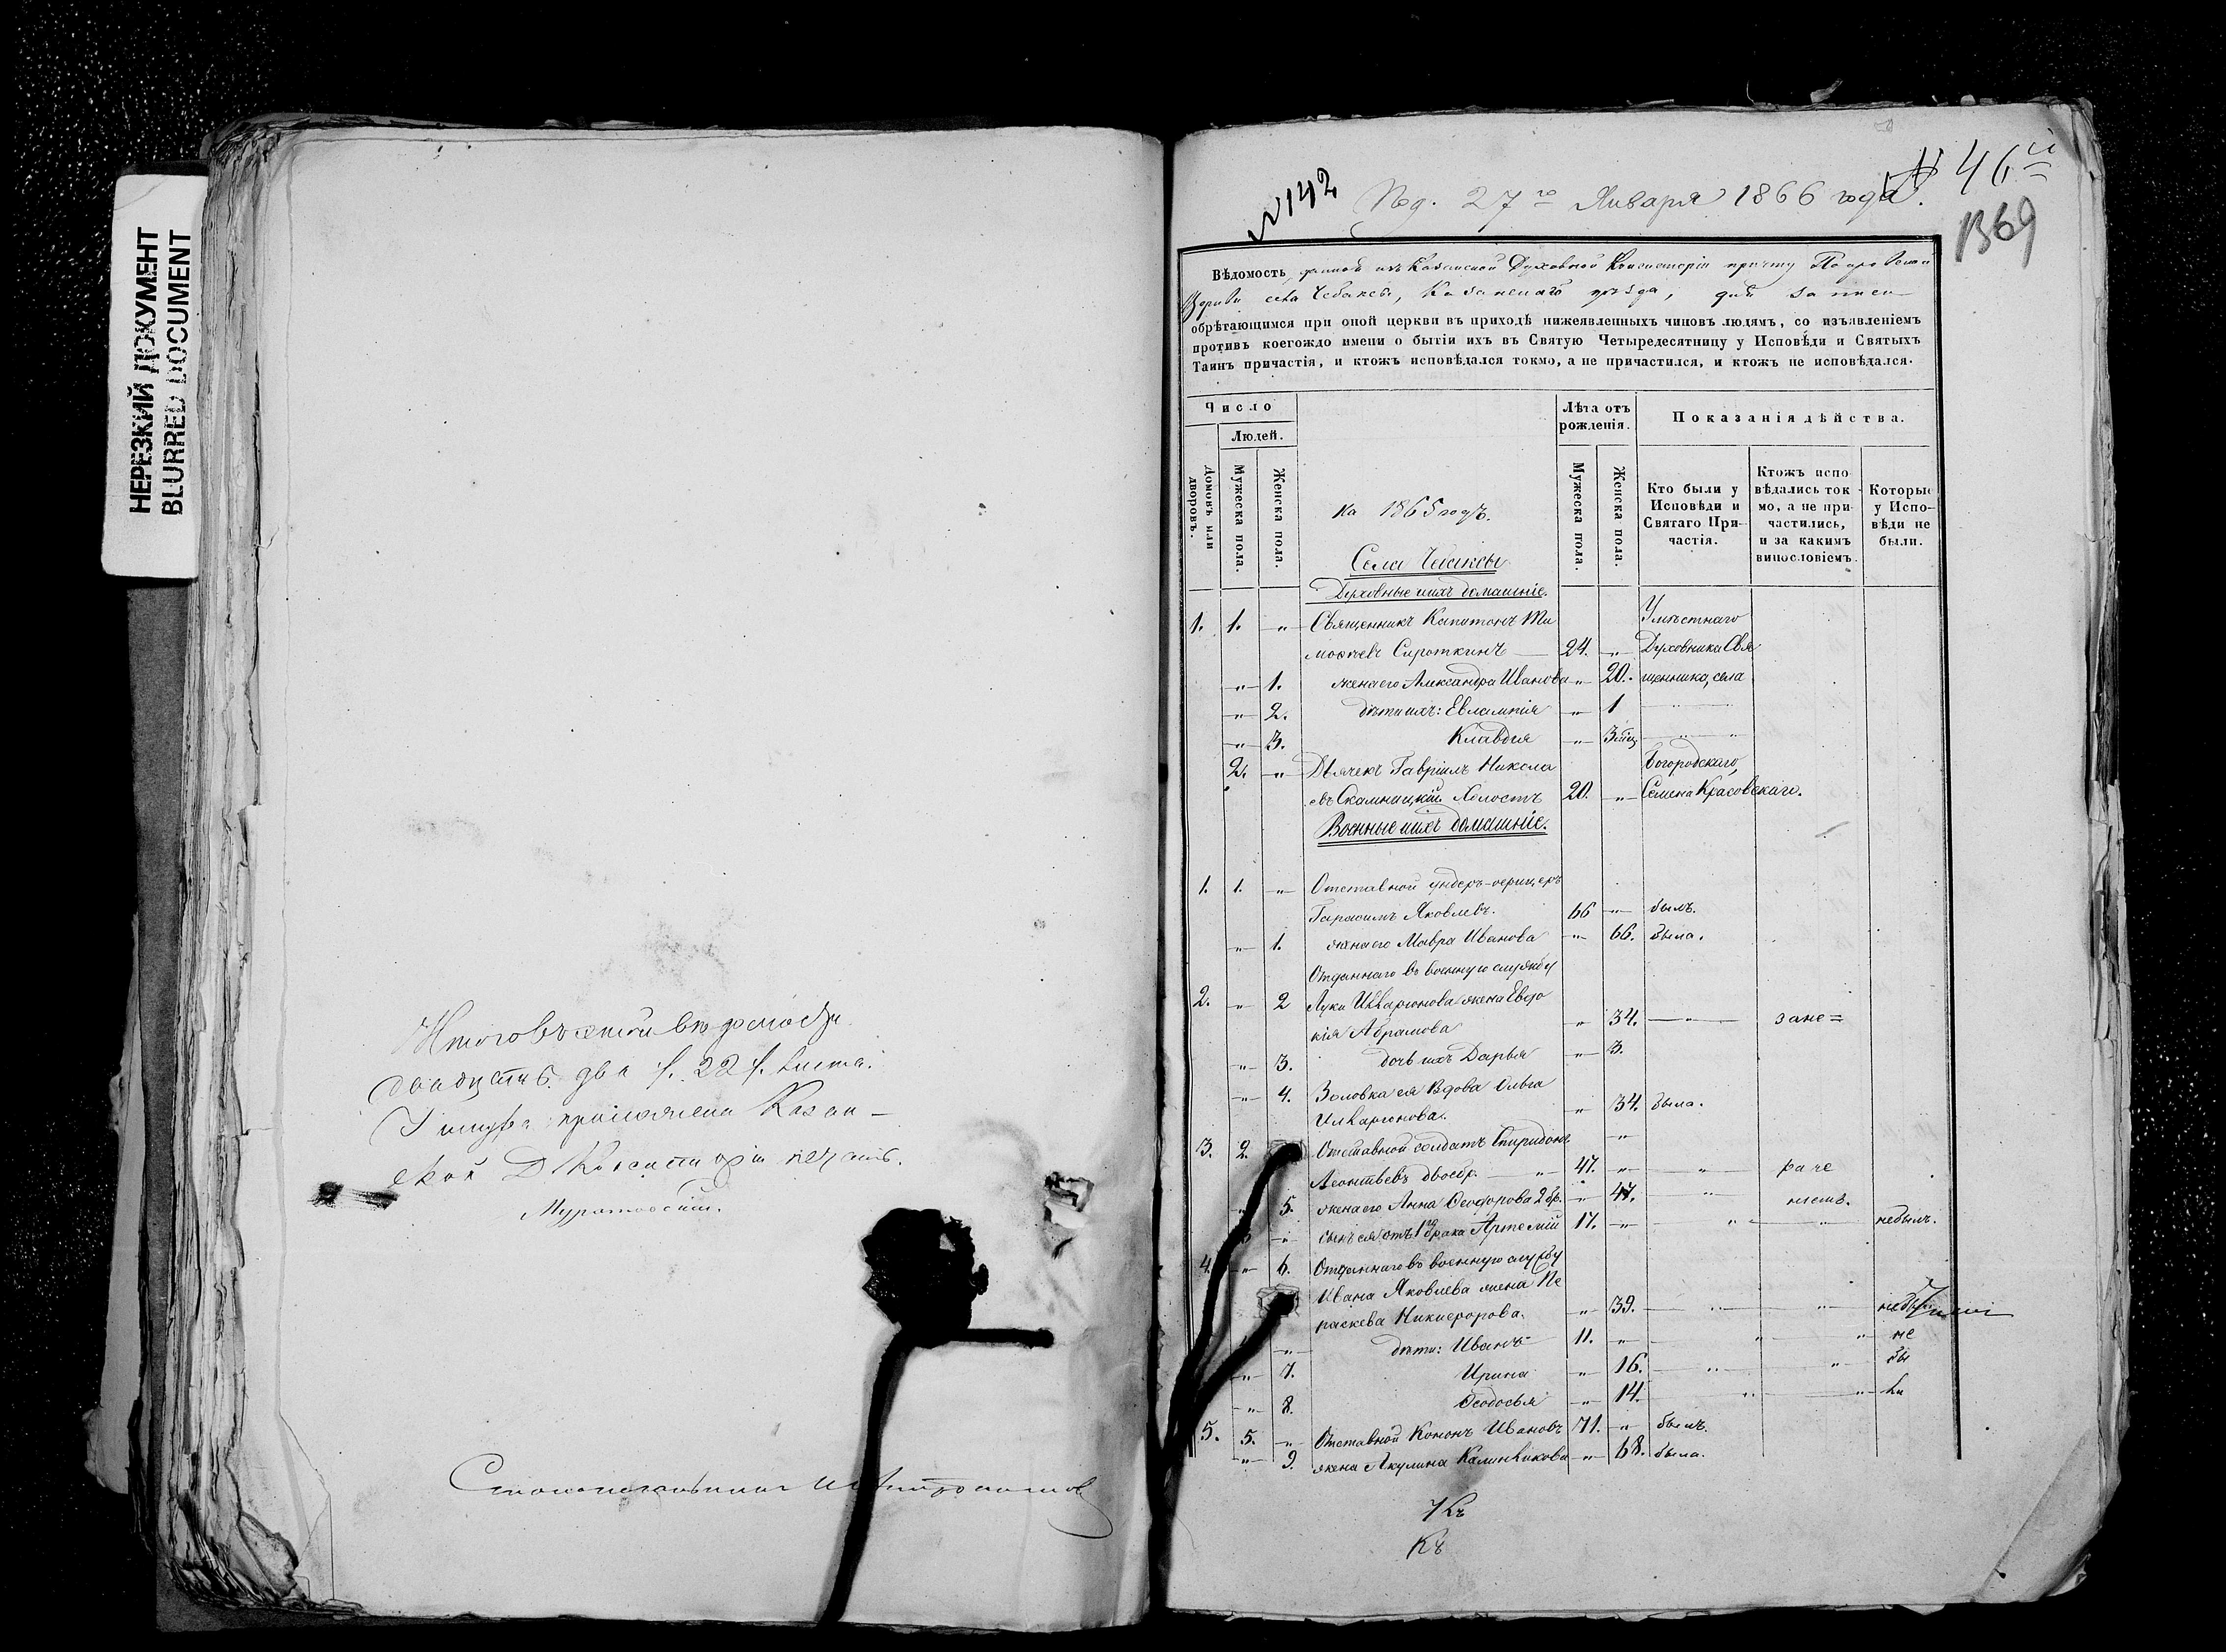 НЕРЕЗКИЙ ДОКУМЕНТ
BLURRED DOCUMENT
Итого въ этой ведомости
двадцать два /. 22 /. листа.
У шнура приложена Казан-
ской Д Консисторіи печать.
Столоначальникъ
№ 142
Под. 27го Января 1866 года.
№ 46й
1369
Вѣдомость, данной изъ Казанской Духовной Консисторіи причту Покровской
Церкви села Чебаксы, Казанскаго уѣзда, для записи
обрѣтающимся при оной церкви въ приходѣ нижеявленныхъ чиновъ людямъ, со изъявленіемъ
противъ коегождо имени о бытіи ихъ въ Святую Четыредесятницу у Исповѣди и Святыхъ
Таинъ причастія, и ктожъ исповѣдался токмо, а не причастился, и ктожъ не исповѣдался.
Число
Людей.
Домовъ или дворовъ.
Мужеска пола.
Женска пола.
Лѣта отъ рожденія.
Мужеска пола.
Женска пола.
Показанія дѣйства.
Кто были у Исповѣди и Святаго При-частія.
Ктожъ испо-вѣдались ток-мо, а не при-частились, и за какимъ винословіемъ.
Которые у Испо-вѣди не были.
На 1865 годъ.
Села Чебаксы
Духовные и ихъ домашніе.
1. 1. „ Священникъ Капитонъ Ти У мѣстнаго
мофеевъ Сироткинъ 24. „ Духовника Свя
„ 1. жена его Александра Иванова „ 20. щенника, села
„ 2. дѣти ихъ: Евлампія „ 1
„ 3. Клавдія „ 3 мѣс „ „
2. „ Дьячекъ Гавріилъ Никола Богородскаго,
евъ Скамницкій. Холостъ 20. „ Семена Красовскаго.
Военные и ихъ домашніе.
1. 1. „ Отставной ундеръ-офицеръ
Гарасимъ Яковлевъ. 66 „ былъ.
„ 1. жена его Мавра Иванова „ 66. была.
Отданнаго въ военную службу
2. „ 2 Луки Илларіонова жена Евдо
кія Абрамова „ 34. „ за не=
„ 3. дочь ихъ Дарья „ 3.
„ 4. Золовка ея Вдова Ольга
Иларіонова. „ 34. была.
3. 2. Отставной солдатъ Спиридонъ „
Леонтьевъ двоебр. „ 47. „ „ раче
„ 5. жена его Анна Феодорова 2 бр. „ 47. „ ніемъ.
„ сынъ ея отъ 1го брака Артемій 17. „ „ „ небылъ.
4. „ 6. Отданнаго въ военную службу
Ивана Яковлева жена Па
раскева Никифорова. „ 39. „ „
„ дѣти: Иванъ 11. „ „ „ не
„ 7. Ирина „ 16. „ „ бы
„ 8. Феодосья „ 14. „ „ ли
5. 5. „ Отставной Кононъ Ивановъ 71. „ былъ.
„ 9. жена Акулина Калинникова „ 68. была.